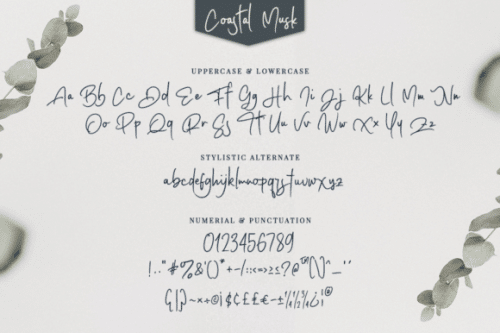 Coastal Musk
UPPERCASE & LOWERCASE
Aa Bb Cc Dd Ee Ff Gg Hh Ii Jj Kk Ll Mm Nn
Oo Pp Qq Rr Ss Tt Uu Vv Ww Xx Yy Zz
STYLISTIC ALTERNATE
abcdefghijklmnopqrstuvwxyz
NUMERIAL & PUNCTUATION
0123456789
!..,"#%&'()*+-/:;<=>≥≤?@™[\]^_''
{|}~×÷©¡¢£€−±¹⁄₄½¾¿®